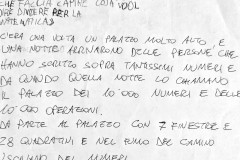 CHE FACCIA CAPIRE COSA VUOL
DIRE DIVIDERE PER LA
MATEMATICA
C'ERA UNA VOLTA UN PALAZZO MOLTO ALTO, E
UNA NOTTE ARRIVARONO DELLE PERSONE CHE
HANNO SCRITTO SOPRA TANTISSIMI NUMERI E
DA QUANDO QUELLA NOTTE LO CHIAMANO
IL PALAZZO DEI 10'000 NUMERI E DELLE
10'000 OPERAZIONI.
DA PARTE AL PALAZZO CON 7 FINESTRE E
28 QUADRATINI E NEL FUMO DEL CAMINO
DEI NUMERI